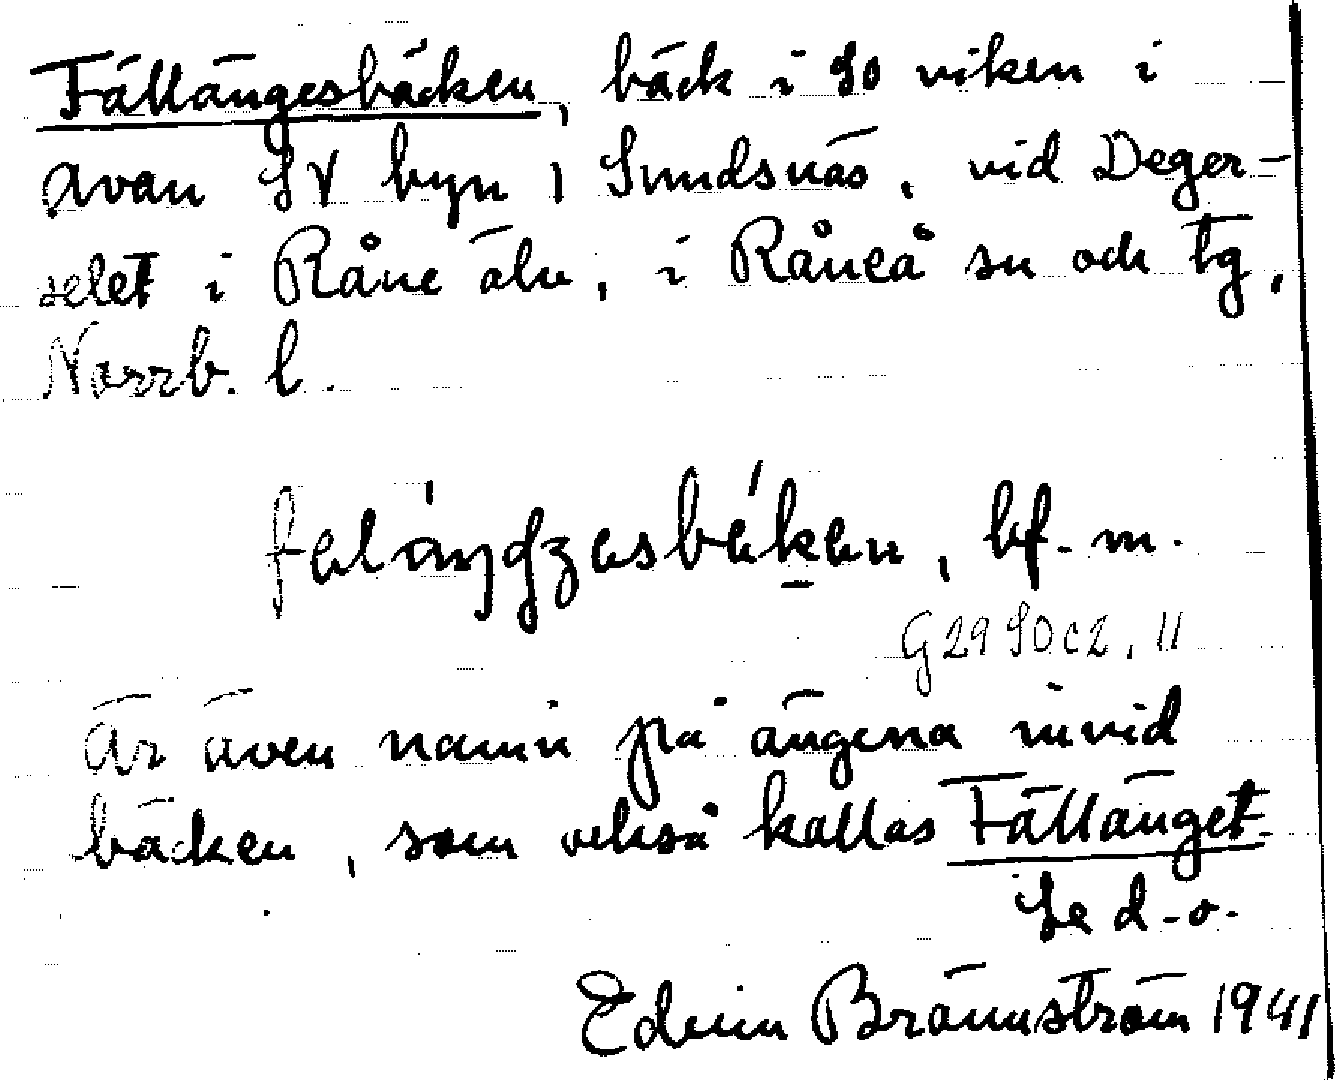 Fällängesbäcken, bäck i SO viken i
avan SV byn i Sundsnäs, vid Deger-
selet i Råne älv, i Råneå sn och tg,
Norrb. l.
felàŋdʒesbéken, bf. m.
G 29 SO c 2, 11
Är även namn på ängena invid
bäcken, som också kallas Fällänget
Se d.o.
Edvin Brännström 1941